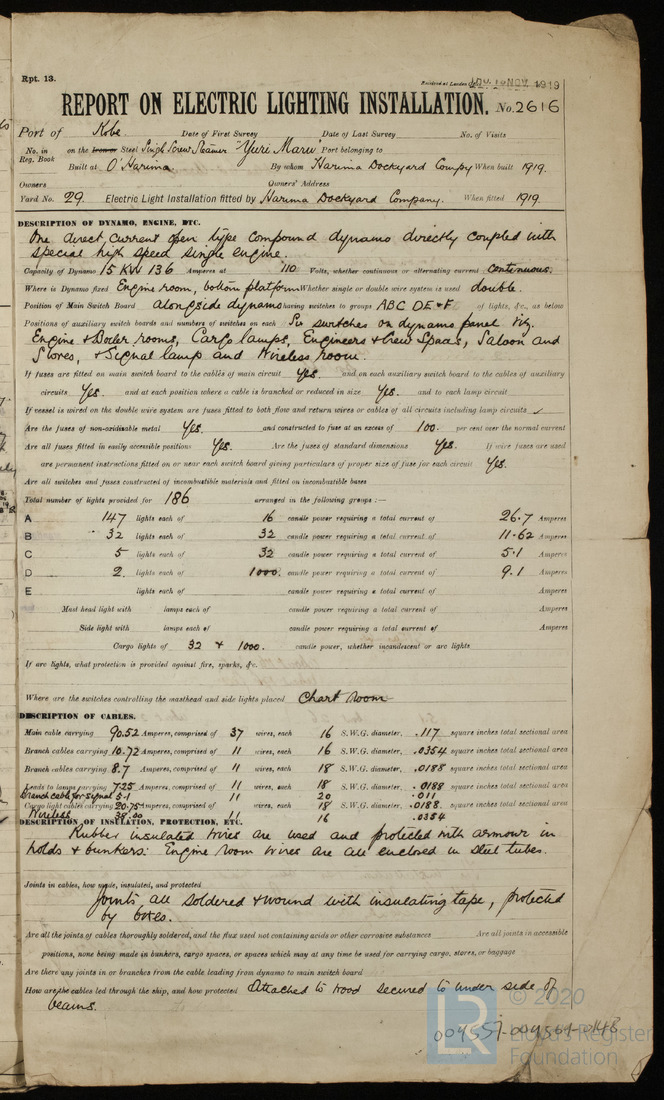 Rpt. 13.
Received at London 10 NOV 1919
REPORT ON ELECTRIC LIGHTING INSTALLATION. No. 2616
Port of Kobe Date of First Survey Date of Last Survey No. of Visits
No. in Reg. Book on the Iron or Steel Single Screw Steamer "Yuri Maru" Port belonging to
Built at O'Harima By whom Harima Dockyard Compy When built 1919.
Owners Owners' Address
Yard No. 29. Electric Light Installation fitted by Harima Dockyard Company. When fitted 1919.
DESCRIPTION OF DYNAMO, ENGINE, ETC.
One direct current open type compound dynamo directly coupled with
special high speed single engine.
Capacity of Dynamo 15 KW 136 Amperes at 110 Volts, whether continuous or alternating current Contenuous.
Where is Dynamo fixed Engine room, bottom platform Whether single or double wire system is used double.
Position of Main Switch Board alongside dynamo having switches to groups ABC DE & F of lights, &c., as below
Positions of auxiliary switch boards and numbers of switches on each Six switches on dynamo panel Viz.
Engine & Boiler rooms, Cargo lamps, Engineers & Crew Spaces, Saloon and
Stores, & Signal lamp and Wireless room.
If fuses are fitted on main switch board to the cables of main circuit Yes. and on each auxiliary switch board to the cables of auxiliary
circuits Yes. and at each position where a cable is branched or reduced in size Yes. and to each lamp circuit
If vessel is wired on the double wire system are fuses fitted to both flow and return wires or cables of all circuits including lamp circuits ✓
Are the fuses of non-oxidizable metal Yes. and constructed to fuse at an excess of 100. per cent over the normal current
Are all fuses fitted in easily accessible positions Yes. Are the fuses of standard dimensions Yes. If wire fuses are used
are permanent instructions fitted on or near each switch board giving particulars of proper size of fuse for each circuit Yes.
Are all switches and fuses constructed of incombustible materials and fitted on incombustible bases
Total number of lights provided for 186 arranged in the following groups :—
A 147 lights each of 16 candle power requiring a total current of 26.7 Amperes
B 32 lights each of 32 candle power requiring a total current of 11.62 Amperes
C 5 lights each of 32 candle power requiring a total current of 5.1 Amperes
D 2 lights each of 1000. candle power requiring a total current of 9.1 Amperes
E lights each of candle power requiring a total current of Amperes
Mast head light with lamps each of candle power requiring a total current of Amperes
Side light with lamps each of candle power requiring a total current of Amperes
Cargo lights of 32 & 1000. candle power, whether incandescent or arc lights
If arc lights, what protection is provided against fire, sparks, &c.
Where are the switches controlling the masthead and side lights placed Chart Room
DESCRIPTION OF CABLES.
Main cable carrying 90.52 Amperes, comprised of 37 wires, each 16 S.W.G. diameter, .117 square inches total sectional area
Branch cables carrying 10.72 Amperes, comprised of 11 wires, each 16 S.W.G. diameter, .0354 square inches total sectional area
Branch cables carrying 8.7 Amperes, comprised of 11 wires, each 18 S.W.G. diameter, .0188 square inches total sectional area
Leads to lamps carrying 7.25 Amperes, comprised of 11 wires, each 18 S.W.G. diameter, .0188 square inches total sectional area
Branch cable for signal 5.1 11 20 .011
Cargo light cables carrying 20.75 Amperes, comprised of wires, each 18 S.W.G. diameter, .0188 square inches total sectional area
Wireless 38.00 11 16 .0354
DESCRIPTION OF INSULATION, PROTECTION, ETC.
Rubber insulated wires are used and protected with armour in
holds & bunkers. Engine room wires are all enclosed in steel tubes.
Joints in cables, how made, insulated, and protected
Joints all soldered & wound with insulating tape, protected
by boxes.
Are all the joints of cables thoroughly soldered, and the flux used not containing acids or other corrosive substances Are all joints in accessible
positions, none being made in bunkers, cargo spaces, or spaces which may at any time be used for carrying cargo, stores, or baggage
Are there any joints in or branches from the cable leading from dynamo to main switch board
How are the cables led through the ship, and how protected Attached to wood secured to under side of
beams.
© 2020
Lloyd's Register
Foundation
004557-004564-0148